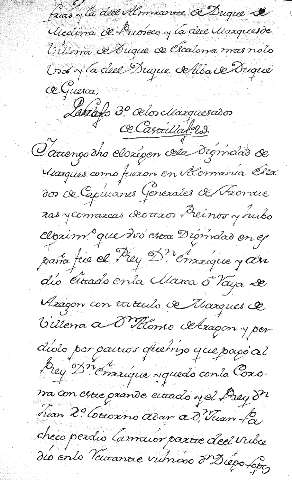 farias y la del Almirante de Duque de
Medina de Rioseco y la del Marques de
Villena de Duque de Escalona mas no lo
tros y la del Duque de Alba de Duque
de Huesca.
Parrafo 3º de los Marquesados
de Castilla
Ya tengo dho el origen desta Dignidad de
Marques como fueron en Alemania Esta
dos de Capitanes Generales de Fronte
ras y comarcas de otros Reinos y hubo
el prim.º que usó esta Dignidad en es
paña fue el Rey D.n Enrrique y an
dio estado en la Marca o Raya de
Aragon con titulo de Marques de
Villena a D.n Alonso de Aragon y per
diolo por pactos que hizo que pagó al
Rey D.n Enrrique y quedo con la Coro
na con este grande estado y el Rey D.n
Juan 2º lo torno a dar a D.n Juan Pa
checo perdió la maior partte de el subce
dio en lo restante su hijo D.n Diego Lopez